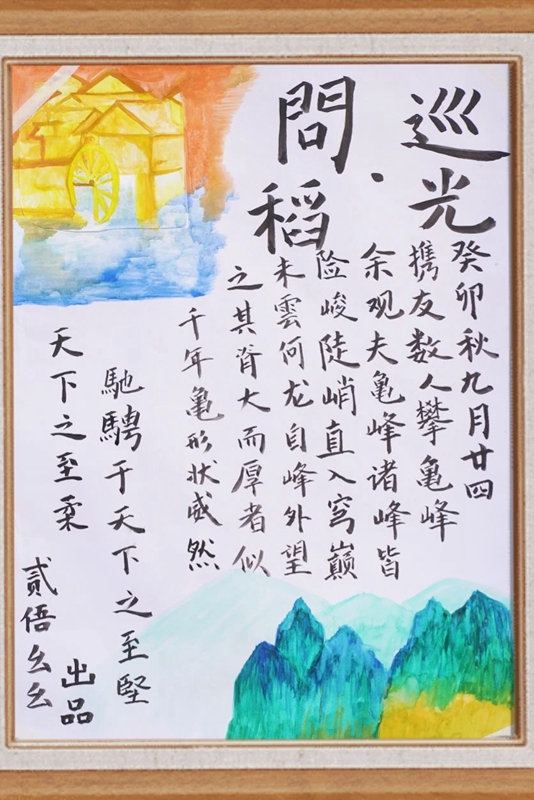 巡光·
問稻
癸卯秋九月廿四
携友数人攀亀峰
余观夫亀峰诸峰皆
险峻陡峭直入穹巅
未雲何龙自峰外望
之其脊大而厚者似
千年亀形状威然
天下之至柔
馳騁于天下之至堅
貳俉幺幺
出品